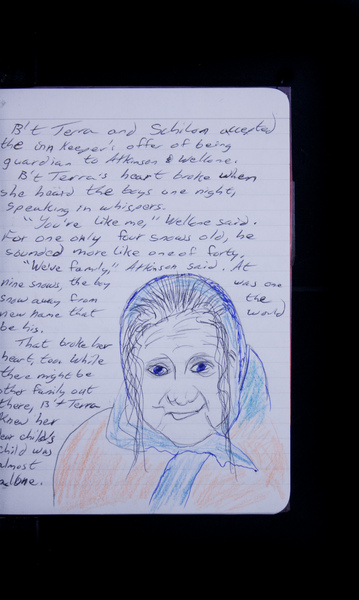 B't Terra and Schilon accepted
the inn keeper's offer of being
guardian to Atkinson & Wellone.
B't Terra's heart broke when
she heard the boys one night,
speaking in whispers.
"You're like me," Wellone said.
For one only four snows old, he
sounded more like one of forty.
"We've family," Atkinson said. At
nine snows, the boy was one
snow away from the
new name that world
be his.
That broke her
heart, too. While
there might be
other family out
there, B't Terra
knew her
dear child's
child was
almost
alone.